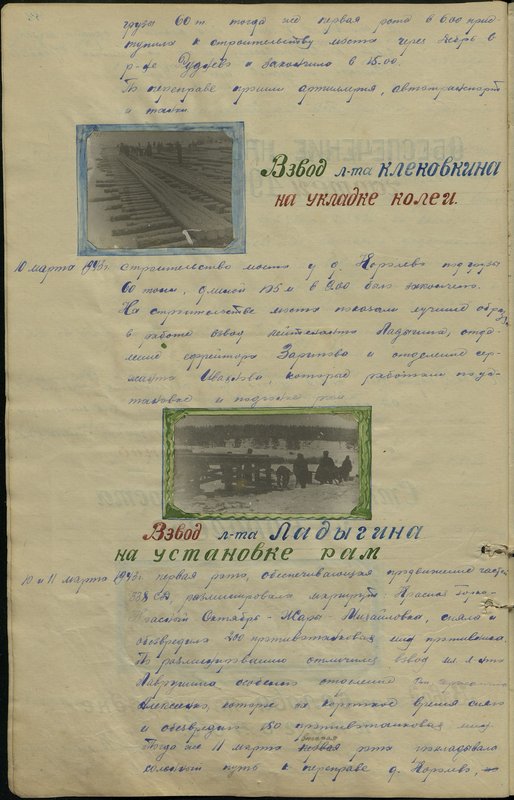 грузы 60 т. тогда же первая рота в 6.00 прис-
тупила к строительству моста через Угру в
р-не и закончила в 15.00.
По переправе прошли артиллерия, автотранспорт
и танки.
Взвод л-та клековкина
на укладке колеи.
10 марта 1943г. строительство моста у д. под грузы
60 тонн, длиной 125 м в 9.00 было закончено.
На строительстве моста показали лучший обра-
в работе взвод лейтенанта Ладыгина, отде-
ление ефрейтора Зарипова и отделение сер-
жанта Иванова, которые работали по ус-
тановке и подгонке рам
Взвод л-та Ладыгина
на установке рам
10 и 11 марта 1943г. первая рота, обеспечивающая продвижение частей
338 СД разминировала маршрут: Красная Горка-
Красный Октябрь - Жары - Михайловка, сняла и
обезвредила 200 противотанковых мин противника.
По разминированию отличился взвод мл. л-та
Лаврушина особенно отделение
Алексеенко, которые за короткое время сняли
и обезвредили 150 противотанковых мин.
Тогда же 11 марта вторая рота прокладывала
колонный путь к переправе д.